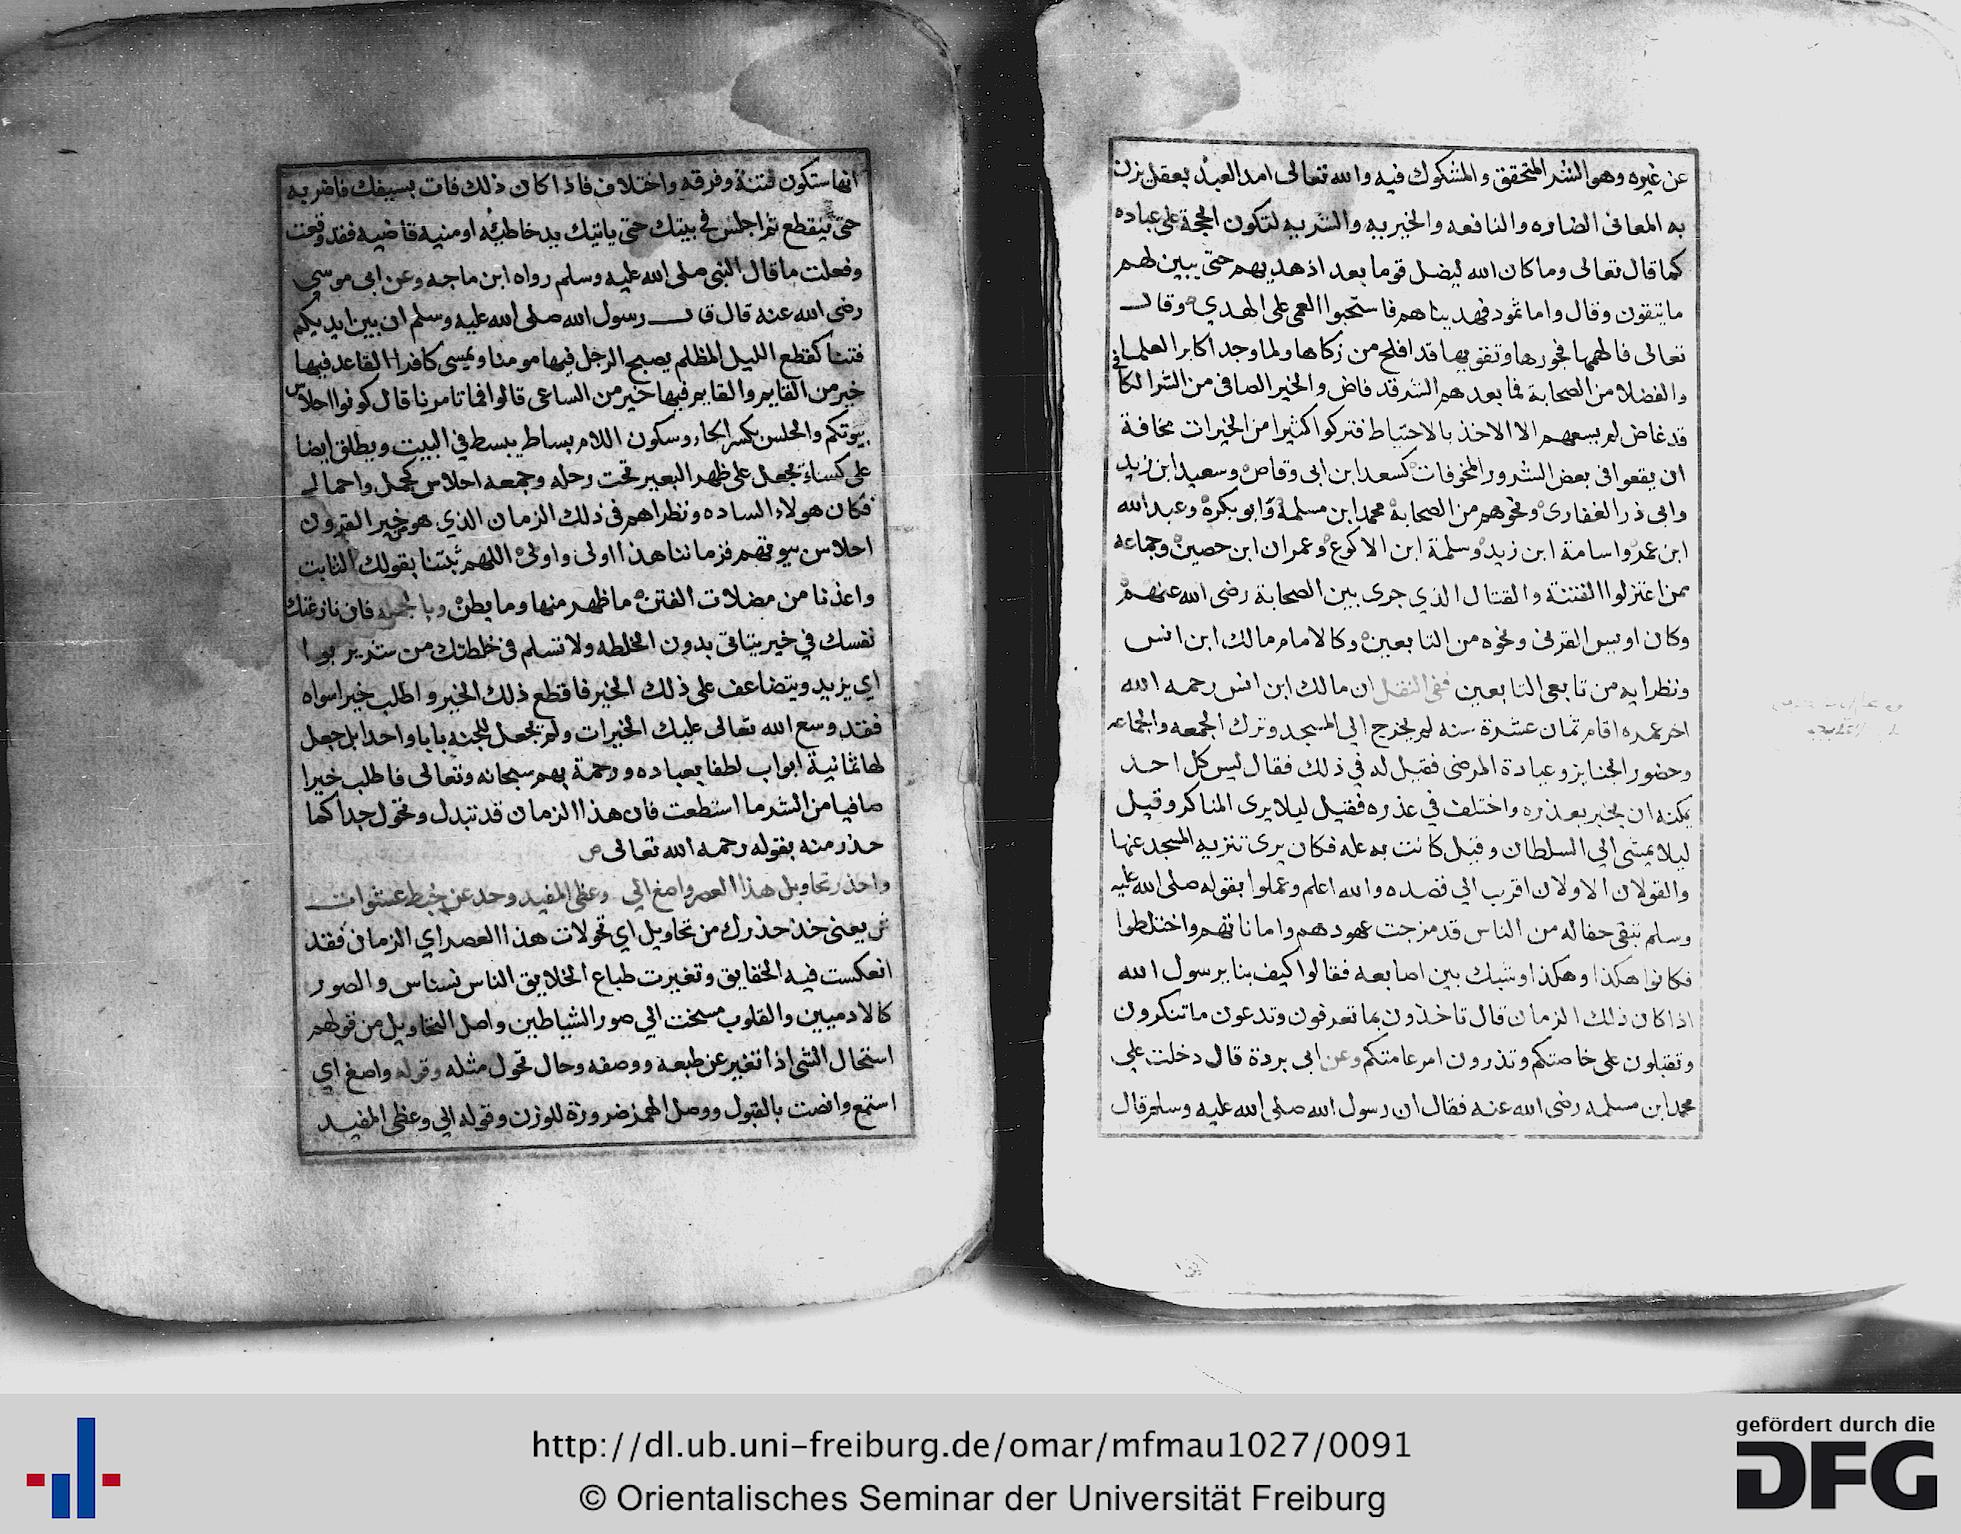 عن غيره وهو الشر المتحقق والمشكوك فيه والله تعالى امد العبد بعقل يزن
به المعانى الضاره والنافعه والخيريه والشريه لتكون الحجة على عباده
كما قال تعالى وما كان الله ليضل قوما بعد اذ هديهم حتى يبين لهم
ما يتقون وقال واما ثمود فهديناهم فاستحبوا العمى على الهدي وقال
تعالى فالهمها فجورها وتقويها قد افلح من زكاها ولما وجد اكابر العلما
والفضلا من الصحابة فما بعدهم الشر قد فاض والخير الصافى من الشر
قد غاض لم يسعهم الا الاخذ بالاحتياط فتركوا كثيرا من الخيرات مخافة
ان يقعوا فى بعض الشرور المخوفات كسعد ابن ابى وقاص وسعيد ابن زيد
وابى ذر الغفارى ونحوهم من الصحابة محمد ابن مسلمة وابو بكرة وعبد الله
ابن عمر واسامة ابن زيد وسلمة ابن الاكوع وعمران ابن حصين وجماعه
ممن اعتزلوا الفتنة والقتال الذي جرى بين الصحابة رضى الله عنهم
وكان اويس القرنى ونحوه من التابعين وكالامام مالك ابن انس
ونظرايه من تابعى التابعين ففى النقل ان مالك ابن انس رحمه الله
اخر عمره اقام ثمان عشرة سنه لم يخرج الي المسجد وترك الجمعه والجماعه
وحضور الجنايز وعيادة المرضى فقيل له في ذلك فقال ليس كل احد
يمكنه ان يخبر بعذره واختلف في عذره فقيل ليلا يرى المناكر وقيل
ليلا يمشى الي السلطان وقيل كانت به عله فكان يرى تنزيه المسجد عنها
والقولان الاولان اقرب الي قصده والله اعلم وعملوا بقوله صلى الله عليه
وسلم تبقى حفاله من الناس قد مزجت عهودهم واماناتهم واختلطوا
فكانوا هكذا وهكذا وشبك بين اصابعه فقالوا كيف بنا يرسول الله
اذا كان ذلك الزمان قال تاخذون بما تعرفون وتدعون ما تنكرون
وتقبلون على خاصتكم وتذرون امر عامتكم وعن ابى بردة قال دخلت علي
محمد ابن مسلمه رضى الله عنه فقال ان رسول الله صلى الله عليه وسلم قال
انها ستكون فتنة وفرقه واختلاف فاذا كان ذلك فات بسيفك فاضربه
حتى ينقطع ثم اجلس في بيتك حتى ياتيك يد خاطئه او منيه قاضيه فقد وقعت
وفعلت ما قال النبى صلى الله عليه وسلم رواه ابن ماجه وعن ابى موسي
رضى الله عنه قال قال رسول الله صلى الله عليه وسلم ان بين ايديكم
فتنا كقطع الليل المظلم يصبح الرجل فيها مومنا ويمسى كافرا القاعد فيها
خير من القايم والقايم فيها خير من الساعى قالوا فما تامرنا قال كونوا احلاس
بيوتكم والحلس بكسر الحاء وسكون اللام بساط يبسط في البيت ويطلق ايضا
على كساء يجعل على ظهر البعير تحت رحله وجمعه احلاس كحمل واحمال
فكان هولاء الساده ونظراهم فى ذلك الزمان الذي هو خير القرون
احلاس بيوتهم فزماننا هذا اولى واولى اللهم ثبتنا بقولك الثابت
واعذنا من مضلات الفتن ما ظهر منها وما بطن وبالجمله فان نازعتك
نفسك في خير يتاتى بدون الخلطه ولا تسلم فى خلطتك من شر يربوا
اي يزيد ويتضاعف على ذلك الخير فاقطع ذلك الخير واطلب خيرا سواه
فقد وسع الله تعالى عليك الخيرات ولم يجعل للجنه بابا واحدا بل جعل
لها ثمانية ابواب لطفا بعباده ورحمة بهم سبحانه وتعالى فاطلب خيرا
صافيا من الشر ما استطعت فان هذا الزمان قد تبدل وتحول جدا كما
حذر منه بقوله رحمه الله تعالى ص
واحذر تحاويل هذا العصر واصغ الي وعظى المفيد وحد عن خبط عشوات
ش يعنى خذ حذرك من تحاويل اي تحولات هذا العصر اي الزمان فقد
انعكست فيه الحقايق وتغيرت طباع الخلايق الناس نسناس والصور
كالادميين والقلوب مسخت الي صور الشياطين واصل التحاويل من قولهم
استحال الشى اذا تغير عن طبعه ووصفه وحال تحول مثله وقوله واصغ اي
استمع وانصت بالقبول ووصل الهمز ضرورة للوزن وقوله الي وعظى المفيد
http://dl.ub.uni-freiburg.de/omar/mfmau1027/0091
© Orientalisches Seminar der Universität Freiburg
gefördert durch die
DFG